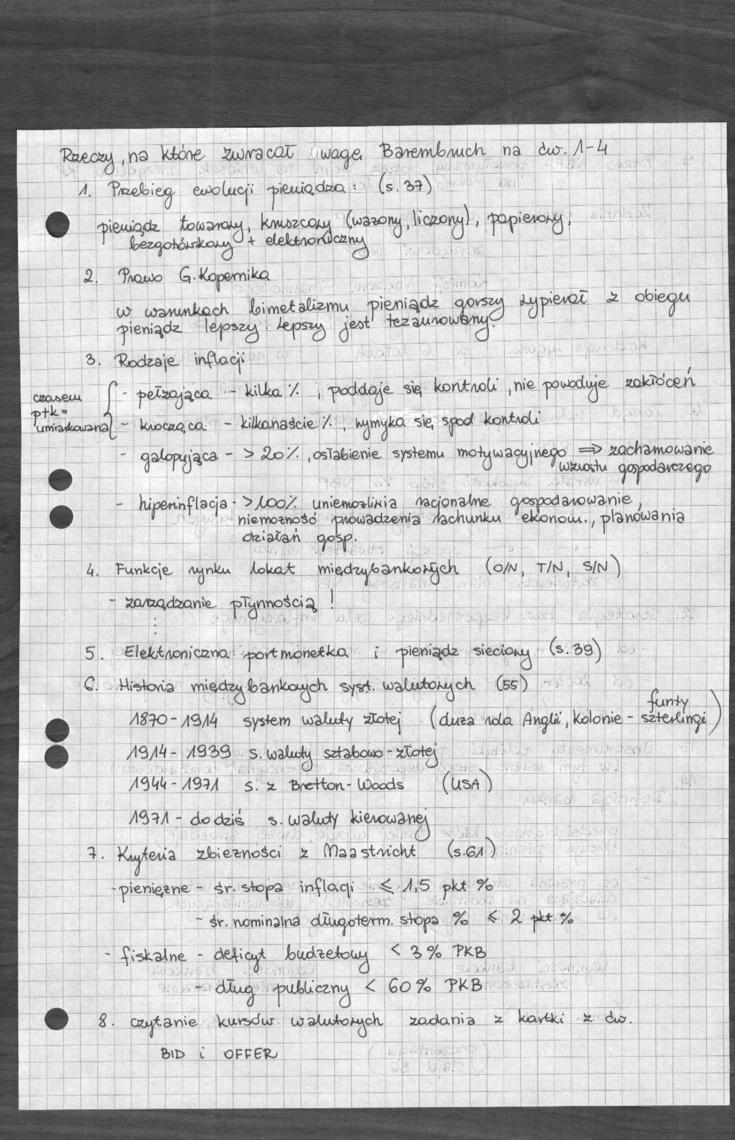 Rzeczy, na które zwracał uwagę Barembruch na ćw. 1-4
1. Przebieg ewolucji pieniądza: (s. 37)
pieniądz towarowy, kruszcowy (ważony, liczony), papierowy,
bezgotówkowy + elektroniczny
2. Prawo G. Kopernika
w warunkach bimetalizmu pieniądz gorszy wypierał z obiegu
pieniądz lepszy. Lepszy jest tezaurowany.
3. Rodzaje inflacji
czasem
p+k =
umiarkowana
- pełzająca - kilka %, poddaje się kontroli, nie powoduje zakłóceń
- krocząca - kilkanaście %, wymyka się spod kontroli
- galopująca - > 20%, osłabienie systemu motywacyjnego ⇒ zachamowanie
wzrostu gospodarczego
- hiperinflacja - >100% uniemożliwia racjonalne gospodarowanie,
niemożność prowadzenia rachunku ekonom., planowania
działań gosp.
4. Funkcje rynku lokat międzybankowych (O/N, T/N, S/N)
- zarządzanie płynnością!
⋮
5. Elektroniczna portmonetka i pieniądz sieciowy (s. 39)
6. Historia międzybankowych syst. walutowych (55)
1870 - 1914 system waluty złotej (duża rola Anglii, kolonie - funty szterlingi)
1914 - 1939 s. waluty sztabowo-złotej
1944 - 1971 s. z Bretton-Woods (USA)
1971 - do dziś s. waluty kierowanej
7. Kryteria zbieżności z Maastricht (s.61)
- pieniężne - śr. stopa inflacji ≤ 1,5 pkt %
- śr. nominalna długoterm. stopa % ≤ 2 pkt %
- fiskalne - deficyt budżetowy < 3% PKB
- dług publiczny < 60% PKB
8. czytanie kursów walutowych zadania z kartki z ćw.
BID i OFFER